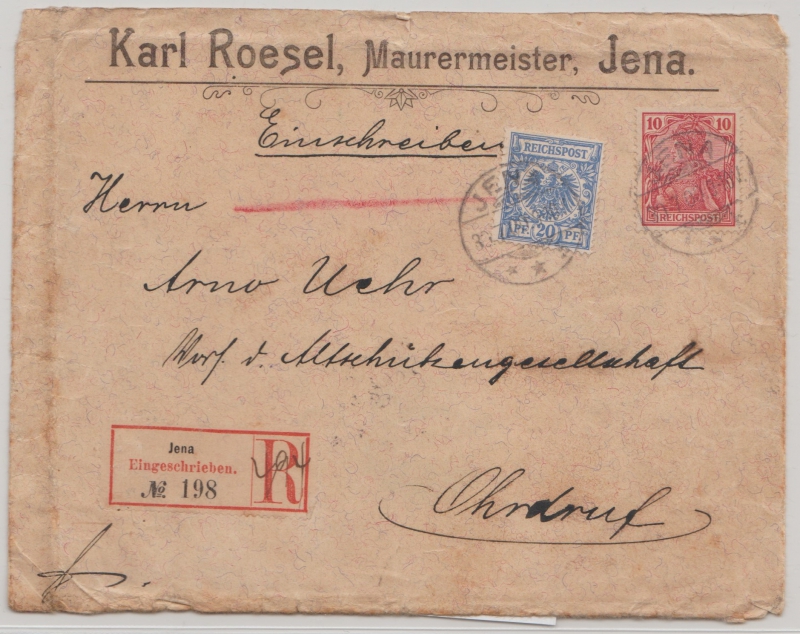 Karl Roesel, Maurermeister, Jena.
Einschreiben
REICHSPOST
PF. 20 PF.
10 10
REICHSPOST
JENA
Herrn
Arno Uehr
Vors. d. Altschützengesellschaft
Jena
Eingeschrieben.
№ 198
R
Ohrdruf